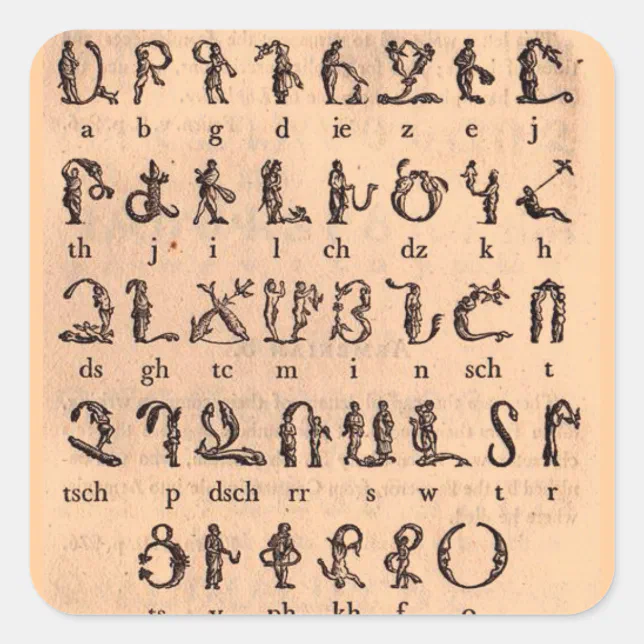 Ա Բ Գ Դ Ե Զ Է Ը
a b g d ie z e j
Թ Ժ Ի Լ Խ Ծ Կ Հ
th j i l ch dz k h
Ձ Ղ Ճ Մ Յ Ն Շ Ո
ds gh tc m i n sch t
Չ Պ Ջ Ռ Ս Վ Տ Ր
tsch p dsch rr s w t r
Ց Ւ Փ Ք Ֆ Օ
ts v ph kh f o